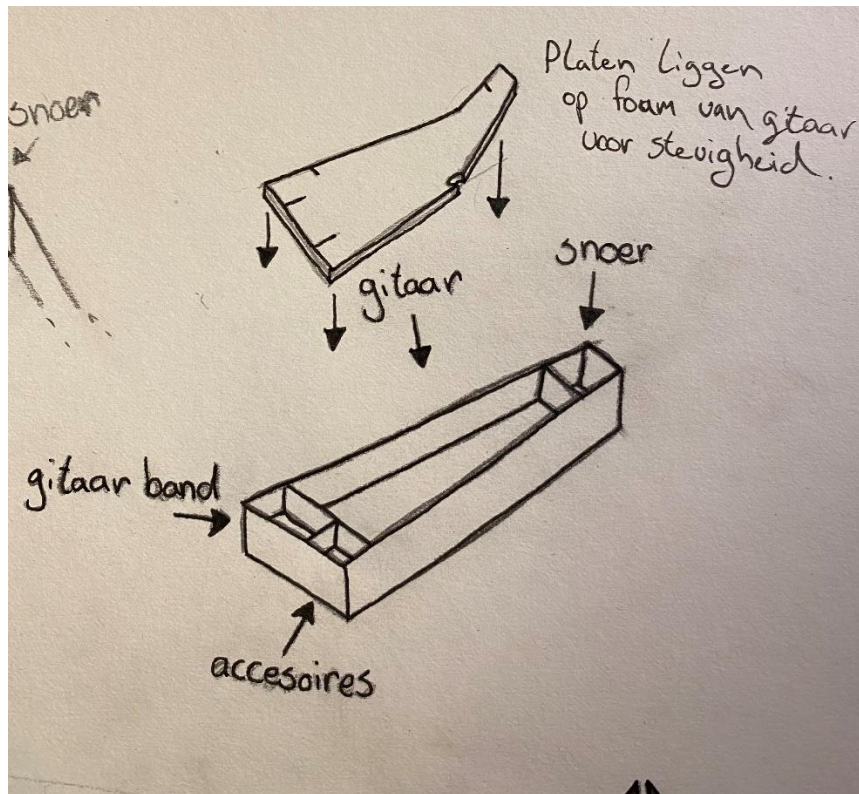 snoer
Platen liggen
op foam van gitaar
voor stevigheid.
gitaar
snoer
gitaar band
accesoires